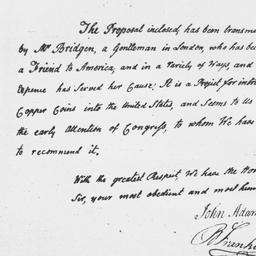 The Proposal inclosed, has been transm
by Mr Bridgen, a Gentleman in London, who has bee
a Friend to America, and in a Variety of Ways, and
Expence has Served her Cause: It is a Project for intr
Copper Coins into the United States, and Seems to Us
the early Attention of Congress, to whom We have
to recommend it.
With the greatest Respect, We have the Hon
Sir, your most obedient and most hum
John Adam
B Frankl